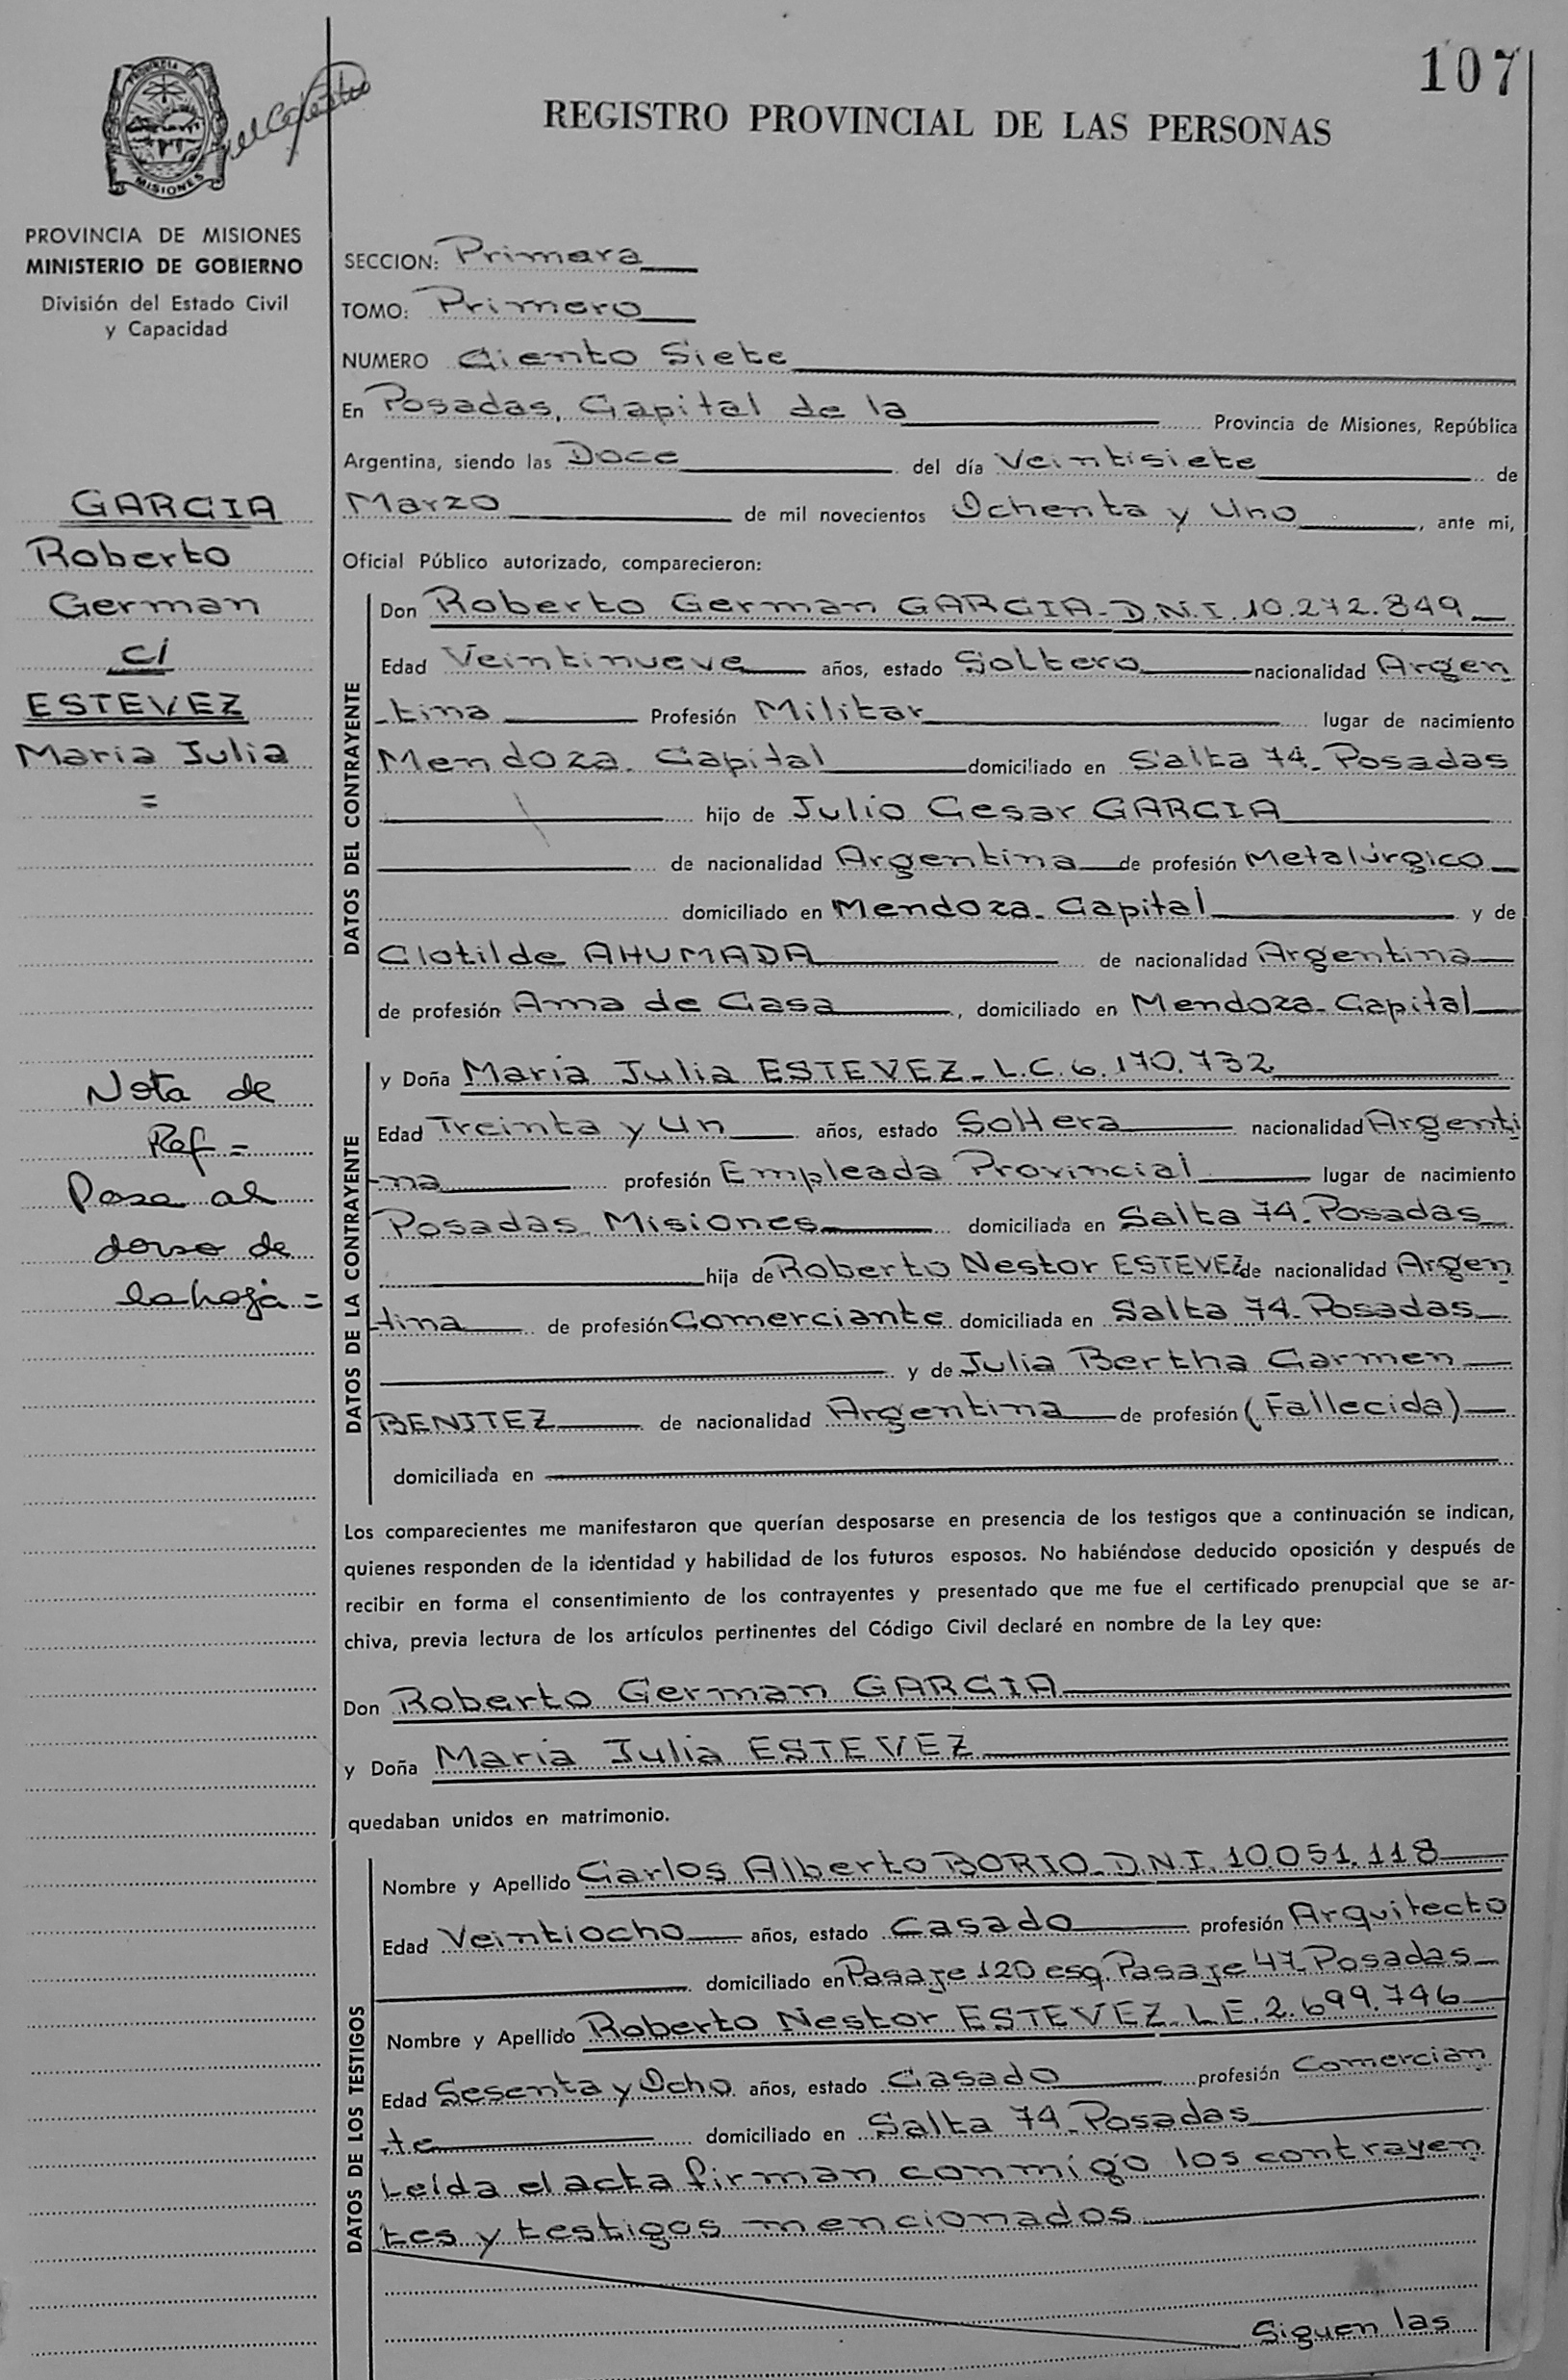 107
PROVINCIA DE
MISIONES
REGISTRO PROVINCIAL DE LAS PERSONAS
PROVINCIA DE MISIONES
MINISTERIO DE GOBIERNO
División del Estado Civil
y Capacidad
GARCIA
Roberto
German
c/
ESTEVEZ
Maria Julia
=
Nota de
Ref =
Pasa al
dorso de
la hoja =
SECCION: Primera
TOMO: Primero
NUMERO Ciento Siete
En Posadas, Capital de la Provincia de Misiones, República
Argentina, siendo las Doce del día Veintisiete de
Marzo de mil novecientos Ochenta y Uno, ante mi,
Oficial Público autorizado, comparecieron:
DATOS DEL CONTRAYENTE
Don Roberto German GARCIA - D.N.I. 10.272.849
Edad Veintinueve años, estado Soltero nacionalidad Argen
-tina Profesión Militar lugar de nacimiento
Mendoza - Capital domiciliado en Salta 74 - Posadas
hijo de Julio Cesar GARCIA
de nacionalidad Argentina de profesión Metalúrgico
domiciliado en Mendoza - Capital y de
Clotilde AHUMADA de nacionalidad Argentina
de profesión Ama de Casa, domiciliado en Mendoza - Capital
DATOS DE LA CONTRAYENTE
y Doña Maria Julia ESTEVEZ - L.C. 6.170.732
Edad Treinta y Un años, estado Soltera nacionalidad Argenti
-na profesión Empleada Provincial lugar de nacimiento
Posadas - Misiones domiciliada en Salta 74 - Posadas
hija de Roberto Nestor ESTEVEZ de nacionalidad Argen
tina de profesión Comerciante domiciliada en Salta 74 - Posadas
y de Julia Bertha Carmen
BENITEZ de nacionalidad Argentina de profesión (Fallecida)
domiciliada en
Los comparecientes me manifestaron que querían desposarse en presencia de los testigos que a continuación se indican,
quienes responden de la identidad y habilidad de los futuros esposos. No habiéndose deducido oposición y después de
recibir en forma el consentimiento de los contrayentes y presentado que me fue el certificado prenupcial que se ar-
chiva, previa lectura de los artículos pertinentes del Código Civil declaré en nombre de la Ley que:
Don Roberto German GARCIA
y Doña Maria Julia ESTEVEZ
quedaban unidos en matrimonio.
DATOS DE LOS TESTIGOS
Nombre y Apellido Carlos Alberto BORIO - D.N.I. 10.051.118
Edad Veintiocho años, estado Casado profesión Arquitecto
domiciliado en Pasaje 120 esq. Pasaje 47 - Posadas
Nombre y Apellido Roberto Nestor ESTEVEZ - L.E. 2.699.746
Edad Sesenta y Ocho años, estado Casado profesión Comercian
te domiciliado en Salta 74 - Posadas
Leída el acta firman conmigo los contrayen
tes y testigos mencionados
Siguen las